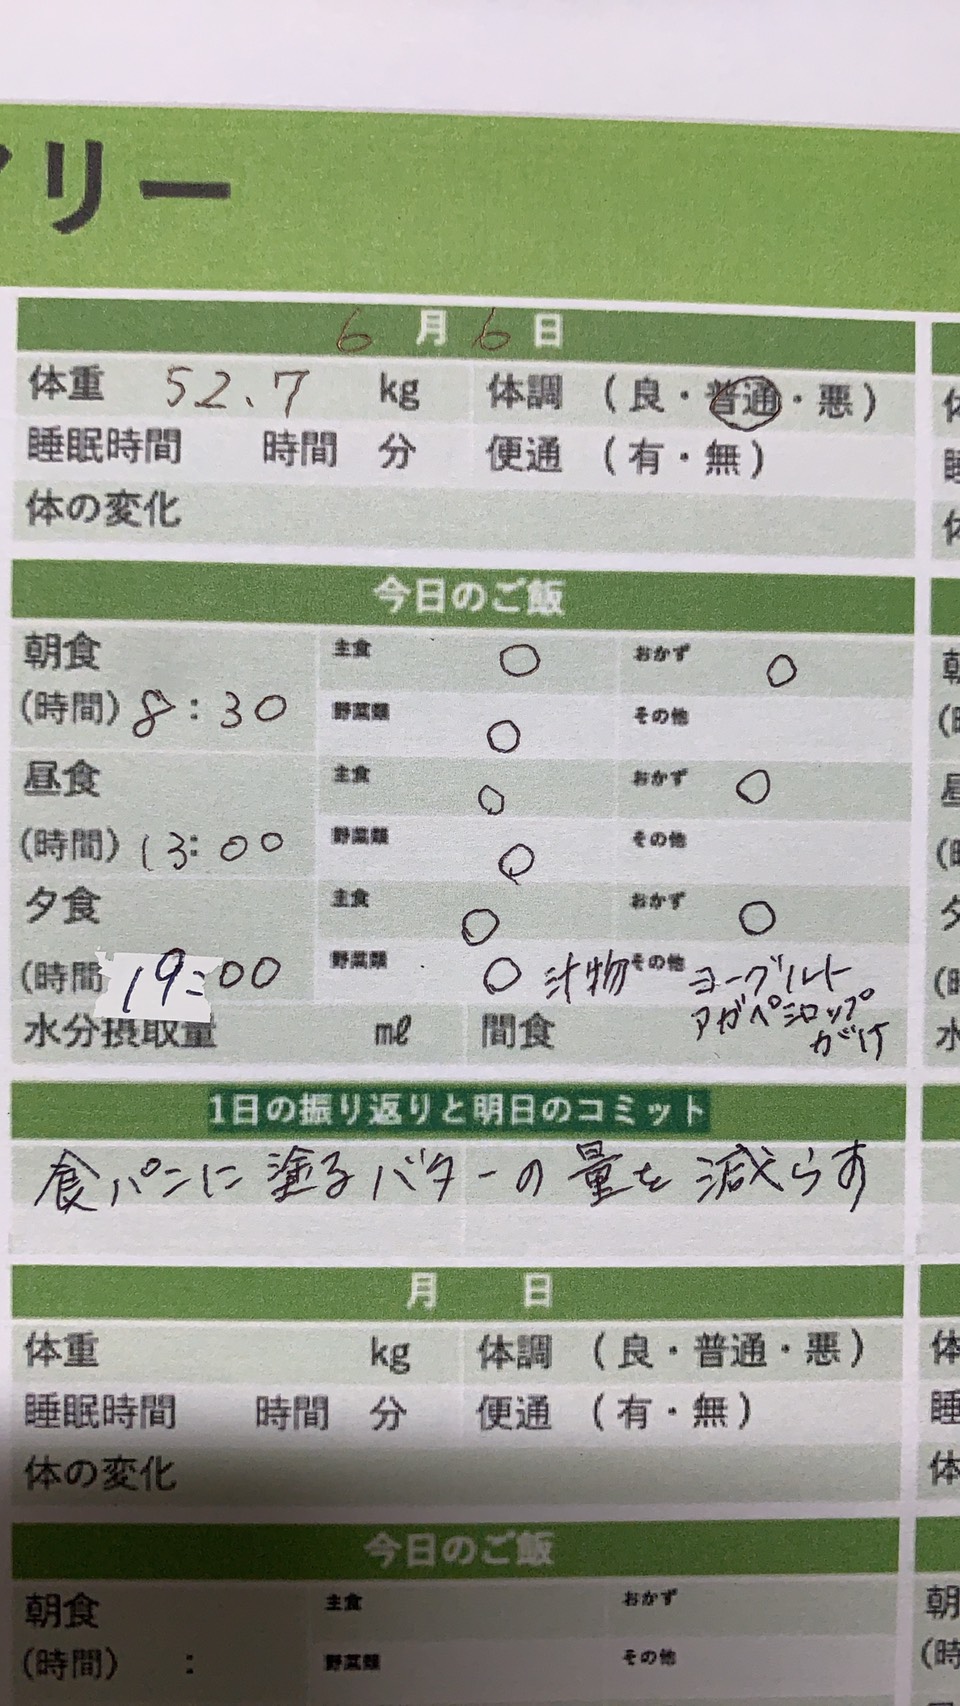 リー
6月6日
体重 52.7 kg 体調 (良・普通・悪)
睡眠時間 時間 分 便通 (有・無)
体の変化
今日のご飯
朝食 主食 ○ おかず ○
(時間) 8:30 野菜類 ○ その他
昼食 主食 ○ おかず ○
(時間) 13:00 野菜類 ○ その他
夕食 主食 ○ おかず ○
(時間 19:00 野菜類 ○ 汁物 その他 ヨーグルト
アガペシロップ
がけ
水分摂取量 ㎖ 間食
1日の振り返りと明日のコミット
食パンに塗るバターの量を減らす
月 日
体重 kg 体調 (良・普通・悪)
睡眠時間 時間 分 便通 (有・無)
体の変化
今日のご飯
朝食 主食 おかず
(時間) : 野菜類 その他